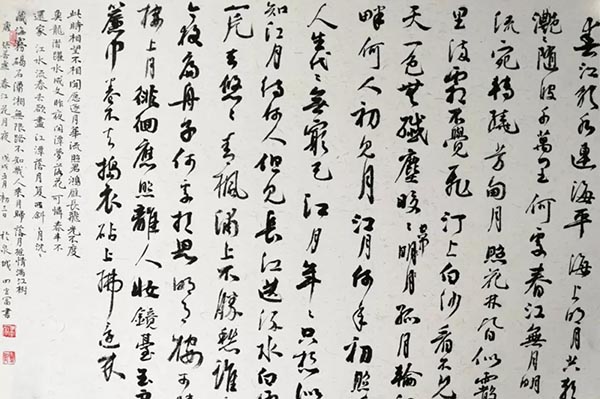 春江潮水連海平海上明月共潮
灔隨波千萬里何處春江無月明
流宛轉繞芳甸月照花林皆似霰
里流霜不覺飛汀上白沙看不見
天一色無纖塵皎々明月孤月輪
畔何人初見月江月何年初照
人生代々無窮已江月年々只相似
知江月待何人但見長江送流水白雲
一片去悠々青楓浦上不勝愁誰
今夜扁舟子何處相思明月樓可憐
樓上月徘徊應照離人妝鏡臺玉戶
簾中卷不去搗衣砧上拂還來
此時相望不相聞願逐月華流照君鴻雁長飛光不度
魚龍潛躍水成文昨夜閒潭夢落花可憐春半不
還家江水流春去欲盡江潭落月復西斜斜月沉々
藏海霧碣石瀟湘無限路不知幾人乘月歸落月搖情滿江樹
張若虛春江花月夜戊戌五月初二日於泉城田立富書